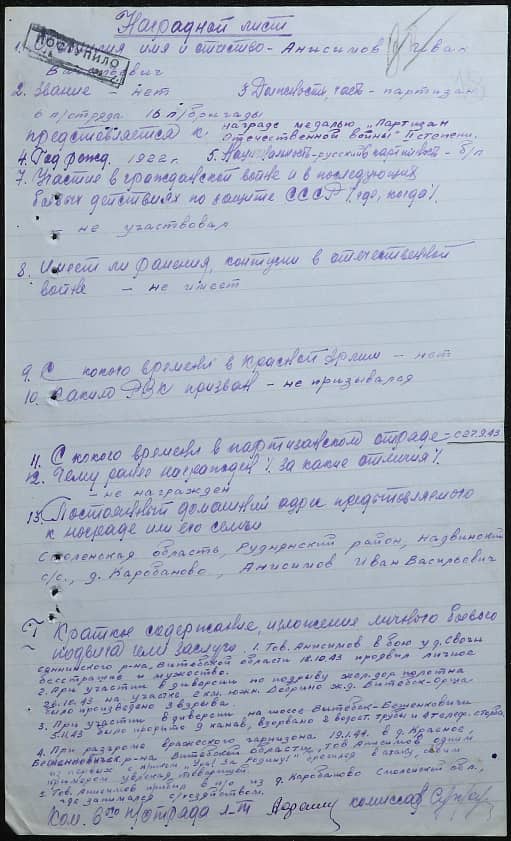 Наградной лист
ПОСТУПИЛО
1. Фамилия имя и отчество - Анисимов Иван
Васильевич
2. Звание - нет 3. Должность, часть - партизан
6 п/отряда 16 п/бригады
представляется к награде медалью „Партизан
Отечественной войны" II степени.
4. Год рожд. 1922 г. 5. Национальность - русский, партийность - б/п
7. Участие в гражданской войне и в последующих
боевых действиях по защите СССР /где, когда/.
- не участвовал
8. Имеет ли ранения, контузии в отечественной
войне - не имеет
9. С какого времени в Красной Армии - нет
10. Каким РВК призван - не призывался
11. С какого времени в партизанском отряде - с 27.9.43
12. Чему ранее награжден /за какие отличия/.
- не награжден
13. Постоянный домашний адрес представляемого
к награде или его семьи
Смоленская область, Руднянский район, Надвинский
с/с., д. Карабаново, Анисимов Иван Васильевич
I Краткое содержание, изложение личного боевого
подвига или заслуг. 1. Тов. Анисимов в бою у д.
Сеннинского р-на, Витебской области 18.10.43 проявил личное
бесстрашие и мужество.
2. При участии в диверсии по подрыву жел.дор. полотна
26.10.43 на участке 2 км. южн. ж.д. Витебск-Орша
было произведено 3 взрыва.
3. При участии в диверсии на шоссе Витебск-Бешенковичи
5.11.43 было прорыто 9 канав, взорвано 2 трубы и 4 телегр. столба
4. При разгроме вражеского гарнизона 19.1.44. в д. Красное,
Бешенковичск. р-на Витебской области, тов. Анисимов одним
из первых с криком „Ура! За Родину!" бросился в атаку, своим
примером увлекая товарищей.
Тов. Анисимов прибыл в п/о из д. Карабаново Смоленской обл.,
где занимался с/хозяйством.
Ком. 6го п/отряда л-т комиссар